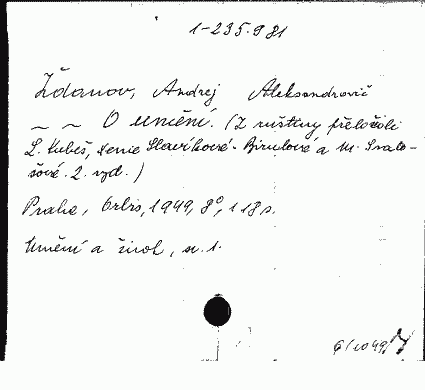 1-235.981
Ždanov, Andrej Aleksandrovič
~ ~ O umění. (Z ruštiny přeložili
L. Kubeš, Xenie Slavíková-Birulová a M.
2. vyd.)
Praha, Orbis, 1949, 8°, 118 s.
Umění a život, sv. 1.